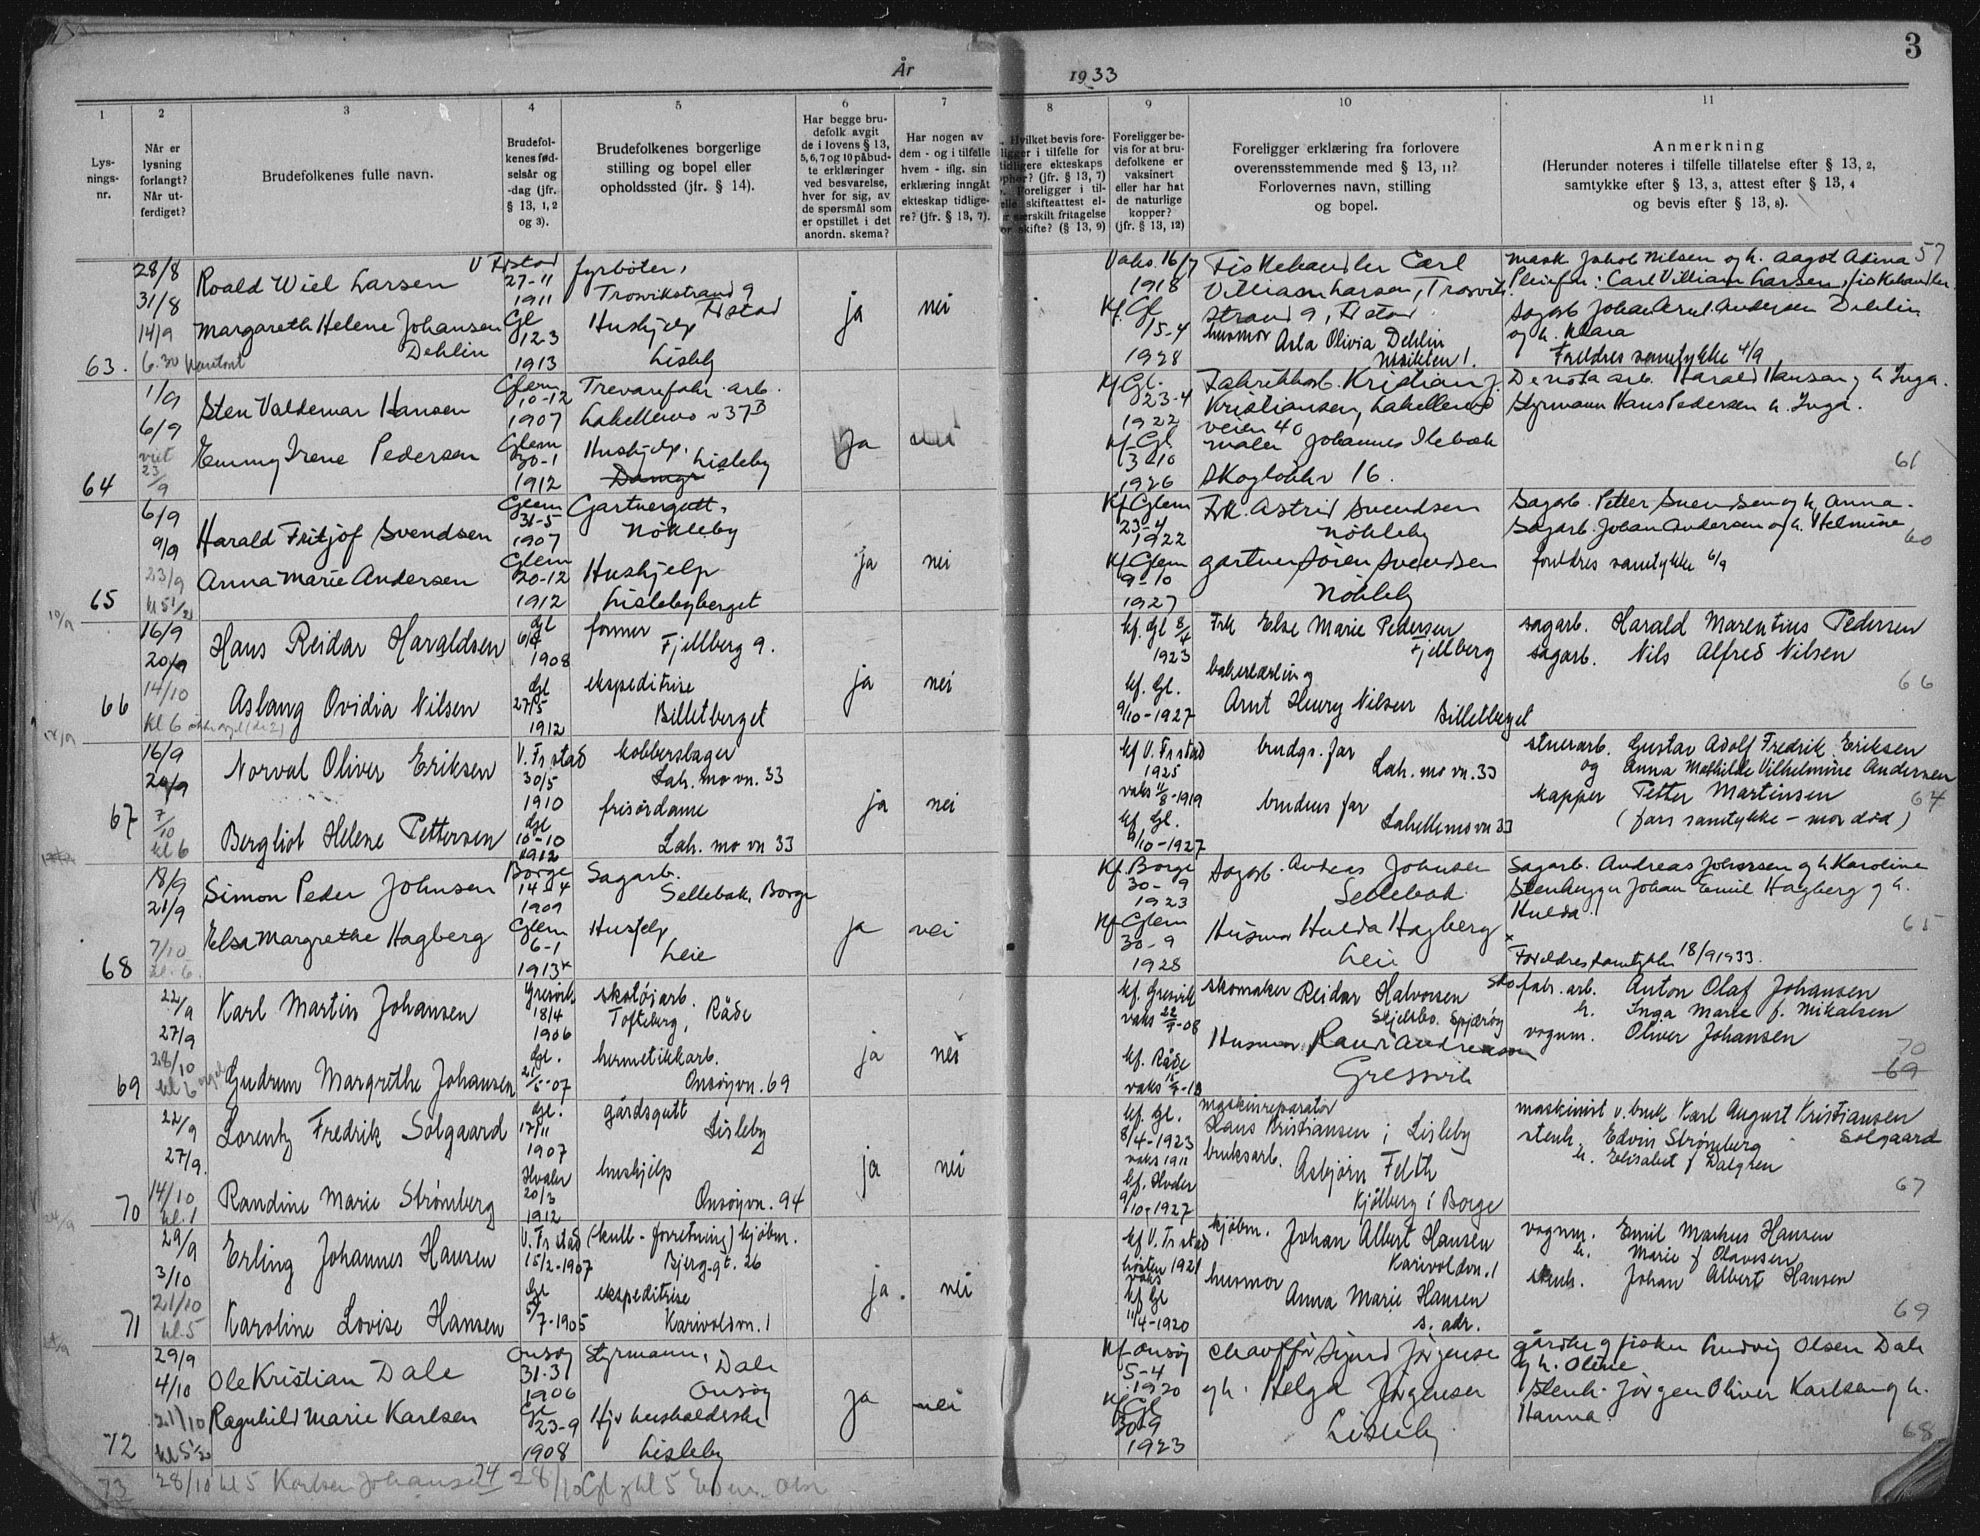 3
År 1933
1 2 3 4 5 6 7 8 9 10 11
Lys-
nings-
nr.
Når er
lysning
forlangt?
Når ut-
ferdiget?
Brudefolkenes fulle navn.
Brudefol-
kenes fød-
selsår og
-dag (jfr.
§ 13, 1, 2
og 3).
Brudefolkenes borgerlige
stilling og bopel eller
opholdssted (jfr. § 14).
Har begge bru-
defolk avgit
de i lovens § 13,
5, 6, 7 og 10 påbud-
te erklæringer
ved besvarelse,
hver for sig, av
de spørsmål som
er opstillet i det
anordn. skema?
Har nogen av
dem - og i tilfelle
hvem - iflg. sin
erklæring inngått
ekteskap tidlige-
re? (jfr. § 13, 7).
Hvilket bevis fore-
ligger i tilfelle for
tidligere ekteskaps
ophør? (jfr. § 13, 7)
Foreligger i til-
felle skifteattest el-
ler særskilt fritagelse
for skifte? (§ 13, 9)
Foreligger be-
vis for at bru-
defolkene er
vaksinert
eller har hat
de naturlige
kopper?
(jfr. § 13, 12)
Foreligger erklæring fra forlovere
overensstemmende med § 13, 11?
Forlovernes navn, stilling
og bopel.
Anmerkning
(Herunder noteres i tilfelle tillatelse efter § 13, 2,
samtykke efter § 13, 3, attest efter § 13, 4
og bevis efter § 13, 8).
63.
28/8
31/8
14/9
6.30
Roald Wiel Larsen
Margareth Helene Johansen
Dehlin
V Frstad
27-11
1911
Gl
12-3
1913
fyrbøter,
Trosvikstrand 9
Frstad
Hushjelp
Lisleby
ja nei
Vaks. 16/7
1918
Kf. Gl
15-4
1928
Fiskehandler Carl
Villiam Larsen, Trosvik
strand 9, Frstad
husmor Asla Olivia Dehlin
mask Jakob Nilsen og h. Aagot Adina 57
Pleiefar: Carl Villiam Larsen, fiskehandler
Sagarb Johan Arvl. Andersen Dehlin
og h. Klara
Foreldres samtykke 4/9
64
1/9
6/9
23/9
Sten Valdemar Hansen
Emmy Irene Pedersen
Glem
10-12
1907
Glem
30-1
1912
Trevarefabr. arb.
Lahellemo v 37 B
Hushjelp,
Lisleby
ja nei
Kf Gl.
23-4
1922
Kf Gl
3-10
1926
Fabrikkarb. Kristian J.
Kristiansen, Lahellemo
veien 40
maler Johannes Ilebæk
Skogløkkv 16.
Harald Hansen og h Inga.
Styrmann Hans Pedersen h. Inga.
61
65
6/9
9/9
23/9
kl 5 1/2
Harald Fritjof Svendsen
Anna Marie Andersen
Glem
31-5
1907
Glem
20-12
1912
Gartnergutt,
Nøkleby
Hushjelp
Lislebyberget
ja nei
Kf Glem
23-4
1922
Kf Glem
9-10
1927
Frk. Astrid Svendsen
Nøkleby
gartner Søren Svendsen
Nøkleby
Sagarb. Petter Svendsen og h. Anna.
Sagarb. Johan Andersen og h. Helmine
60
foreldres samtykke 6/9
10/9
66
16/9
20/9
14/10
kl 6
Hans Reidar Haraldsen
Aslaug Ovidia Nilsen
Gl
1908
Gl
27/5
1912
former
Fjellberg 9.
ekspeditrise
Billetberget
ja nei
kf. Gl 8/4
1923
kf. Gl.
9/10-1927
Frk Else Marie Pedersen
Fjellberg
bakerlærling
Arnt Henry Nilsen Billetberget
sagarb. Harald Marentius Pedersen
sagarb. Nils Alfred Nilsen
66
67
16/9
20/9
7/10
kl 6
Norval Oliver Eriksen
Bergliot Helene Pettersen
V. Frstad
30/5
1910
Gl
10-10
1912
kobberslager
Lah. mo vn. 33
frisørdame
Lah. mo vn 33
ja nei
kf V. Frstad
1925
vaks 11/8-1919
kf Gl.
9/10-1927
brudgs. far
Lah. mo vn. 33
brudens far
Lahellemo vn 33
stuerarb. Gustav Adolf Fredrik Eriksen
og Anna Mathilde Vilhelmine Andersen
kapper Petter Martinsen 64
(fars samtykke - mor død)
68
18/9
21/9
7/10
kl. 6
Simon Peder Johnsen
Else Margrethe Hagberg
Borge
14-4
1909
Glem
6-1
1913
Sagarb.
Sellebak, Borge
Hushjelp
Leie
ja nei
Kf. Borge
30-9
1923
Kf Glem
30-9
1928
Sagarb. Andreas Johnsen
Sellebak
Husmor Hulda Hagberg
Leie
Sagarb. Andreas Johnsen og h Karoline
Stenhugger Johan Emil Hagberg og h.
Hulda.
65
Foreldres samtykke 18/9 1933.
69
22/9
27/9
28/10
kl 6
Karl Martin Johansen
Gudrun Margrethe Johansen
Gresvik
18/4
1906
Gl.
skotøiarb.
Tofteberg, Råde
hermetikkarb.
Onsøyvn. 69
ja nei
kf. Gresvik
vaks 22/9-08
kf. Råde
vaks
skomaker Reidar Halvorsen
Skjelsbo. Spjærøy
Husmor Randi Andreassen
Gressvik
Skofabr. arb. Anton Olaf Johansen
h. Inga Marie f. Mikalsen
vognm. Oliver Johansen
70
69
70
22/9
27/9.
14/10
kl. 1
Lorentz Fredrik Solgaard
Randine Marie Strømberg
Gl.
17/11
1907
Hvaler
20/3
1912
gårdsgutt
Lisleby
hushjelp
Onsøyvn. 94
ja nei
kf. Gl.
8/4-1923
vaks 1911
kf. Hvaler
9/10-1927
maskinreparatør
Hans Kristiansen i Lisleby
bruksarb.
Asbjørn Feldth
Kjølberg i Borge
maskinist v. bruk Karl August Kristiansen
Solgaard
stenh. Edvin Strømberg
h. Elisabet f Dalgren
67
71
29/9
3/10
21/10
kl. 5
Erling Johannes Hansen
Karoline Lovise Hansen
V. Frstad
15/2-1907
Gl
5/7-1905
(kull-forretning) kjøbm.
Bjerg.gt. 26
ekspeditrise
Karivoldvn. 1
ja. nei
kf V. Frstad
høsten 1921
vaks
kf Gl
11/4-1920
kjøbm. Johan Albert Hansen
Karivoldvn. 1
husmor
Anna Marie Hansen
s. adr.
vognm. Emil Markus Hansen
h. Marie f Olavesen
stenh. Johan Albert Hansen
69
72
29/9
4/10
21/10
kl 5 1/2
Ole Kristian Dale
Ragnhild Marie Karlsen
Onsøy
31-31
1906
Gl
23-9
1908
Styrmann,
Dale
Onsøy
Hjv husholderske
Lisleby
ja nei
Kf Onsøy
5-4
1920
Kf Gl
30-9
1923
chauffør Sigurd Jørgensen
og h. Helga Jørgensen
Lisleby
gårdbr og fisker Ludvig Olsen Dale
og h. Oline
Stenh. Jørgen Oliver Karlsen og h.
Hanna.
68
73 28/10 kl 5 Karlsen Johansen 74 28/10 kl 5